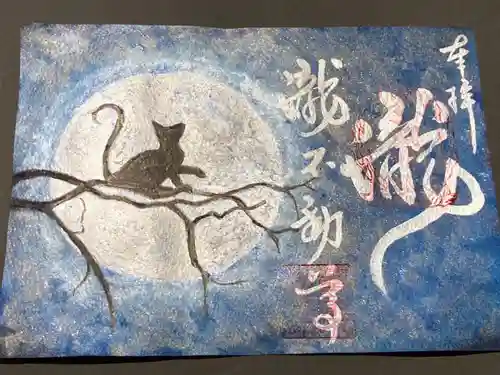 奉拝
瀧
不動尊